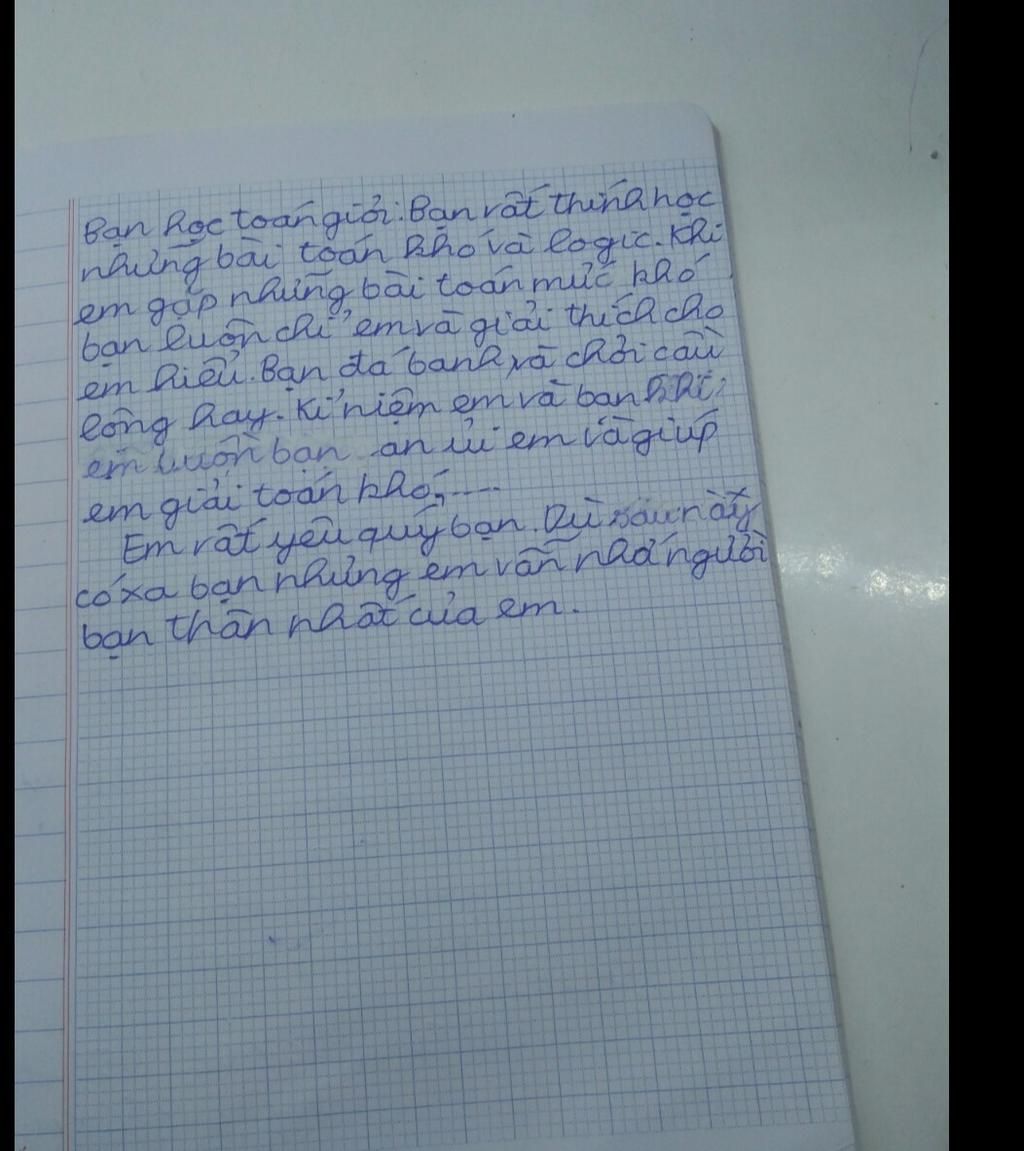 Bạn học toán giỏi. Bạn rất thính học
những bài toán khó và logic. Khi
em gặp những bài toán mức khó
bạn luôn chỉ em và giải thích cho
em hiểu. Bạn đá banh và chơi cầu
lông hay. Kỉ niệm em và bạn khi
em buồn bạn an ủi em và giúp
em giải toán khó,....
Em rất yêu quý bạn. Dù sau này
có xa bạn nhưng em vẫn nhớ người
bạn thân nhất của em.